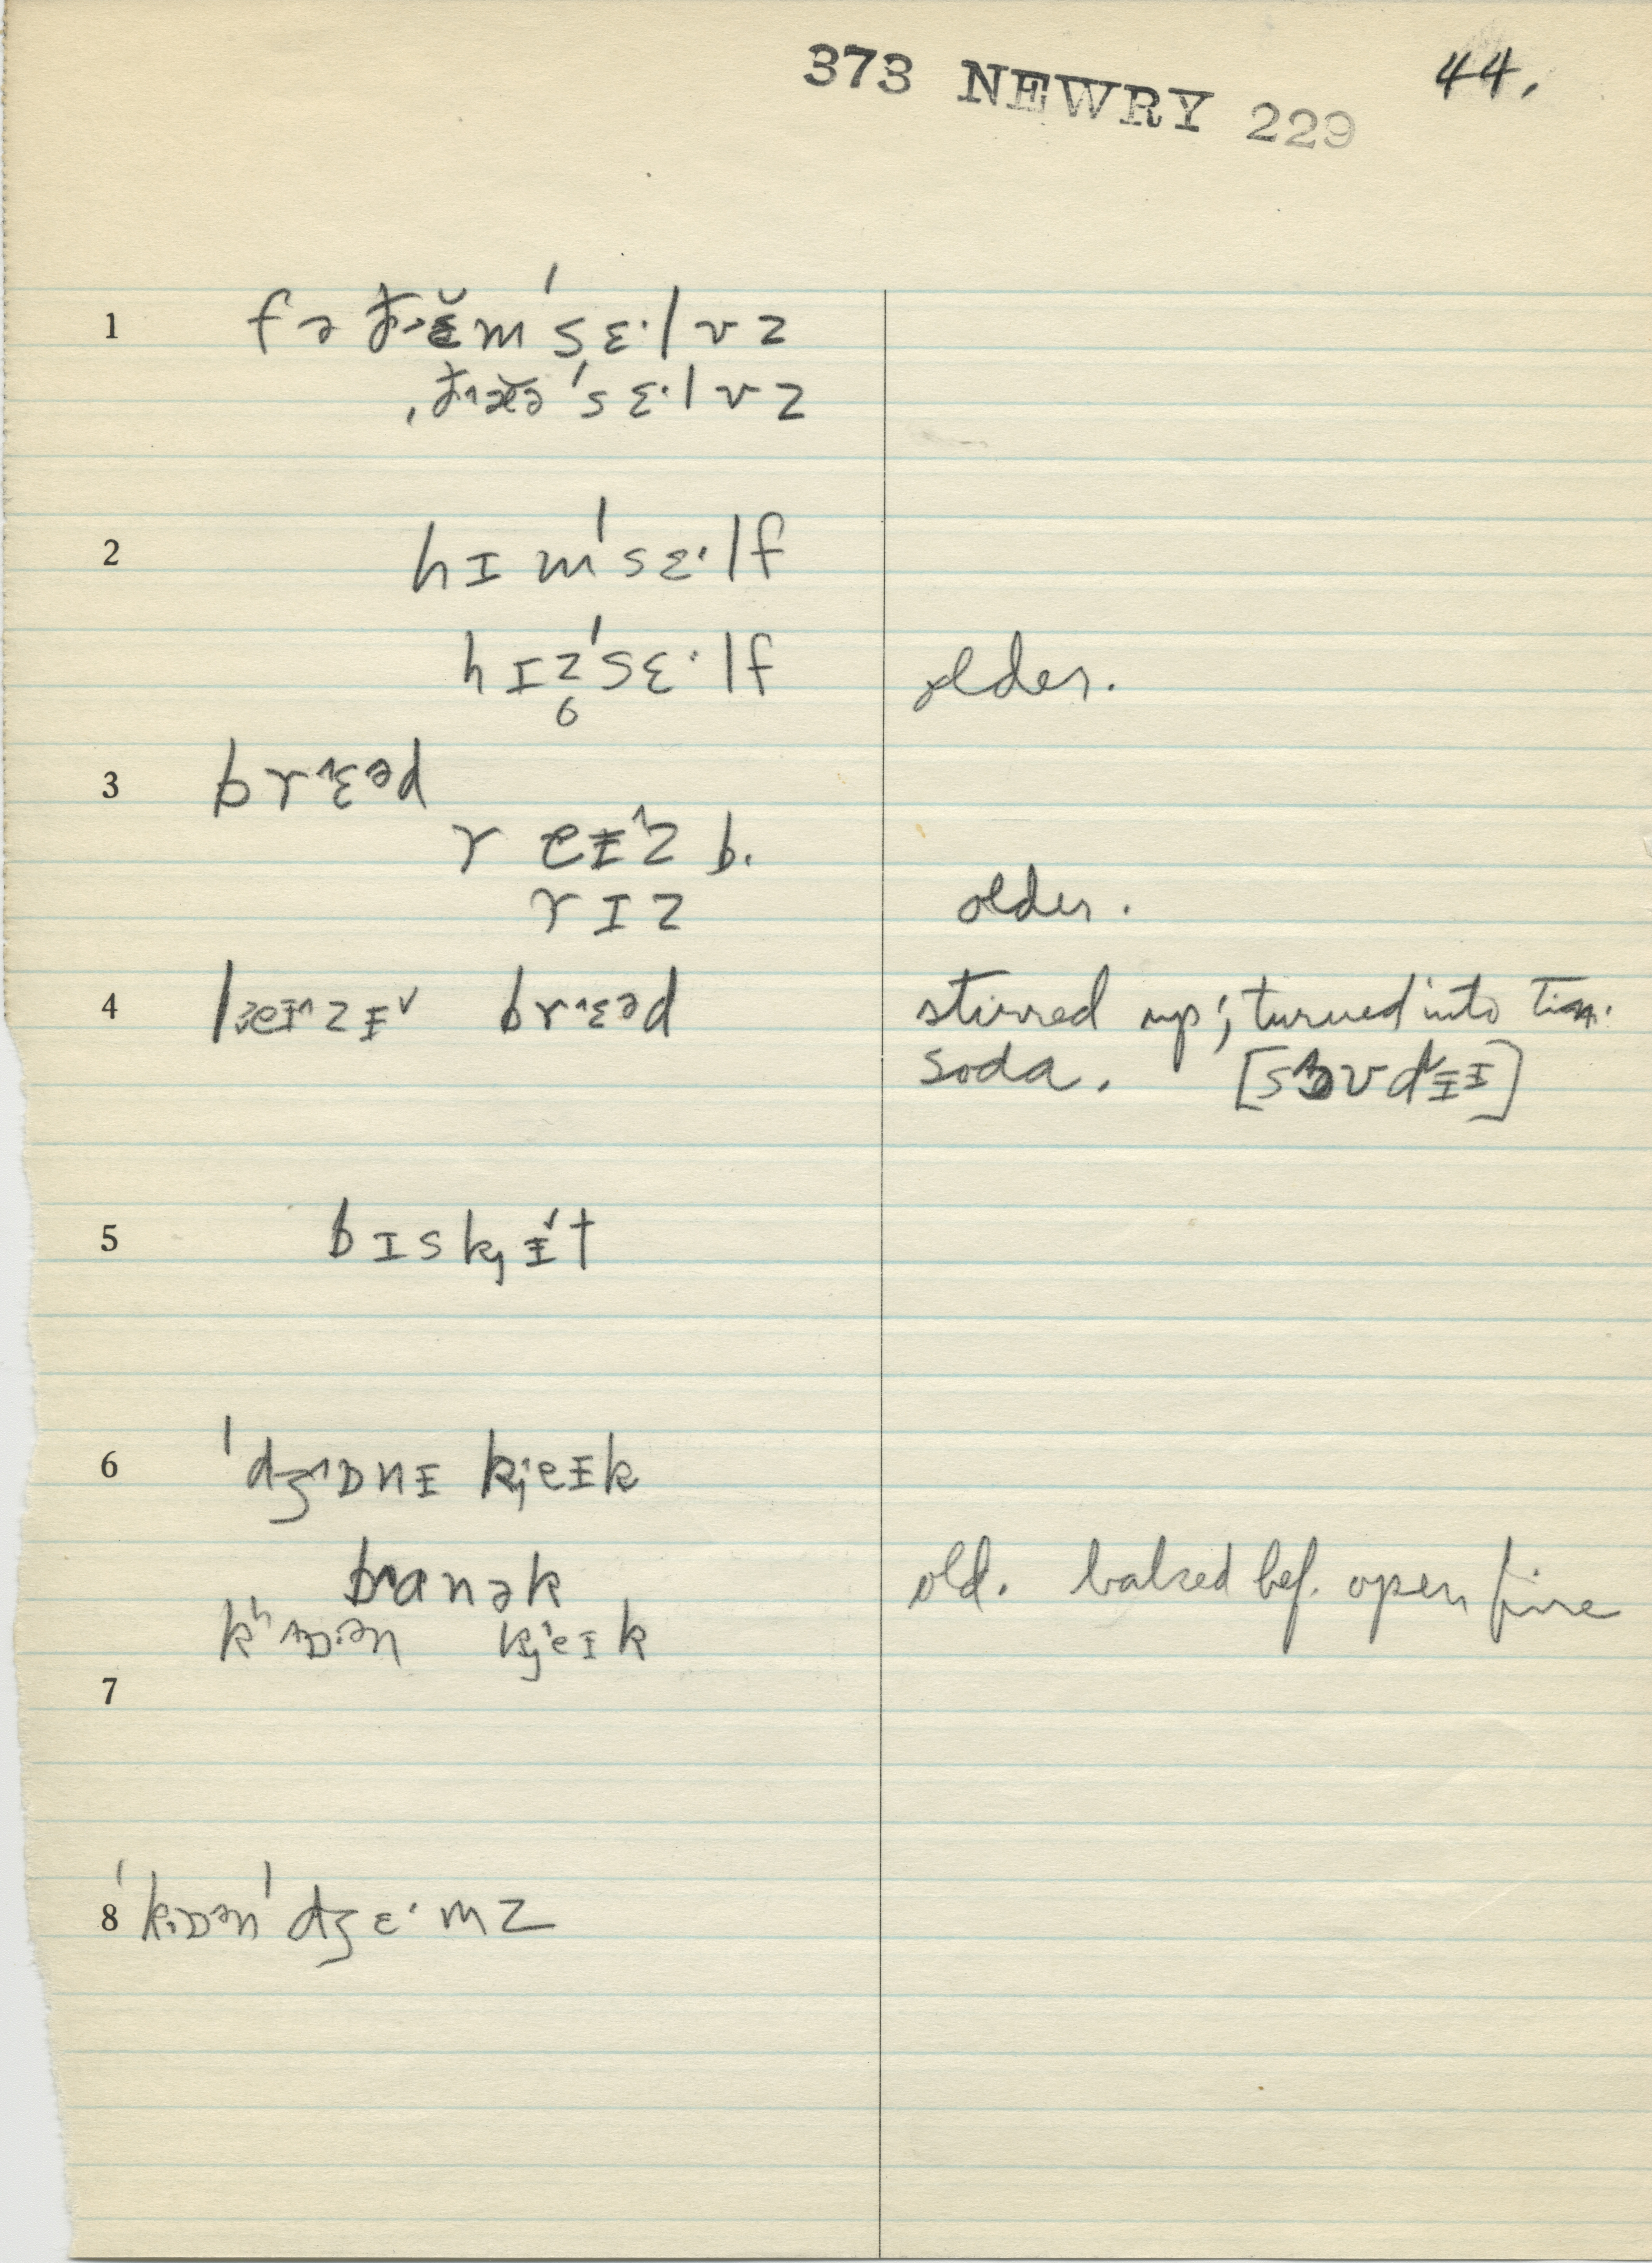 373 NEWRY 229
44.
1 fə ðɛ̆m ˈsɛ·lvz
, ðæə ˈsɛ·lvz
2 hɪm ˈsɛ·lf
hɪz̥ ˈsɛ·lf older.
3 brɛəd
r eɪz b.
rɪz older.
4 bread stirred up; turned into tin.
soda.
5 bɪskɪt
6 ˈdʒɒnɪ kjeɪk
banək old. baked bef. open fire
kʰɒ·ən kjeɪk
7
8 ˈkɒənˈdʒɛ·mz